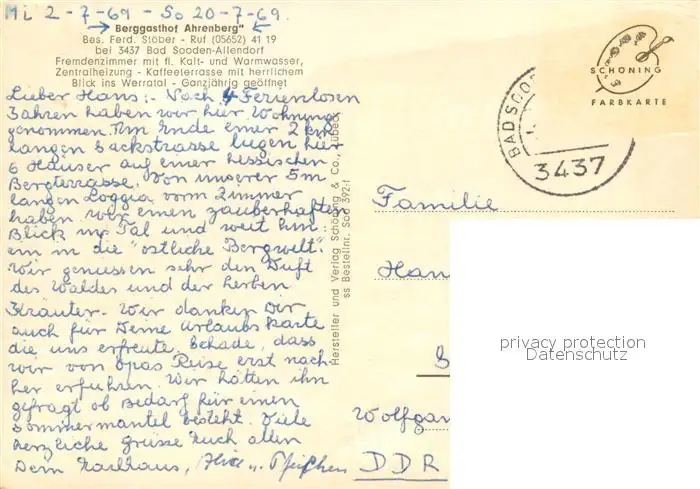 Mi 2-7-69 - So 20-7-69.
Berggasthof Ahrenberg"
Bes. Ferd. Stöber - Ruf (05652) 41 19
bei 3437 Bad Sooden-Allendorf
Fremdenzimmer mit fl. Kalt- und Warmwasser,
Zentralheizung - Kaffeeterrasse mit herrlichem
Blick ins Werratal - Ganzjährig geöffnet
Lieber Hans:- Nach 4 Ferienlosen
Jahren haben wir hier Wohnung
genommen. Am Ende einer 2 km
langen Sackstrasse liegen hier
6 Häuser auf einer hessischen
Bergterrasse. Von unserer 5m
langen Loggia vorm Zimmer
haben wir einen zauberhaften
Blick ins Tal und weit hin:
ein in die "östliche Bergwelt".
Wir geniessen sehr den Duft
des Waldes und der herben
Kräuter. Wir danken Dir
auch für Deine Urlaubskarte
die uns erfreute. Schade, dass
wir von Opas Reise erst nach:
her erfuhren. Wir hätten ihn
gefragt ob Bedarf für einen
Sommermantel besteht. Viele
herzliche grüsse Euch allen
Dein
Hersteller und Verlag Schöning & Co., Lübeck
ss Bestellnr. Soo 392 f
SCHÖNING
FARBKARTE
BAD SOOD
3437
Familie
Han
Wolfgan
DDR
privacy protection
Datenschutz